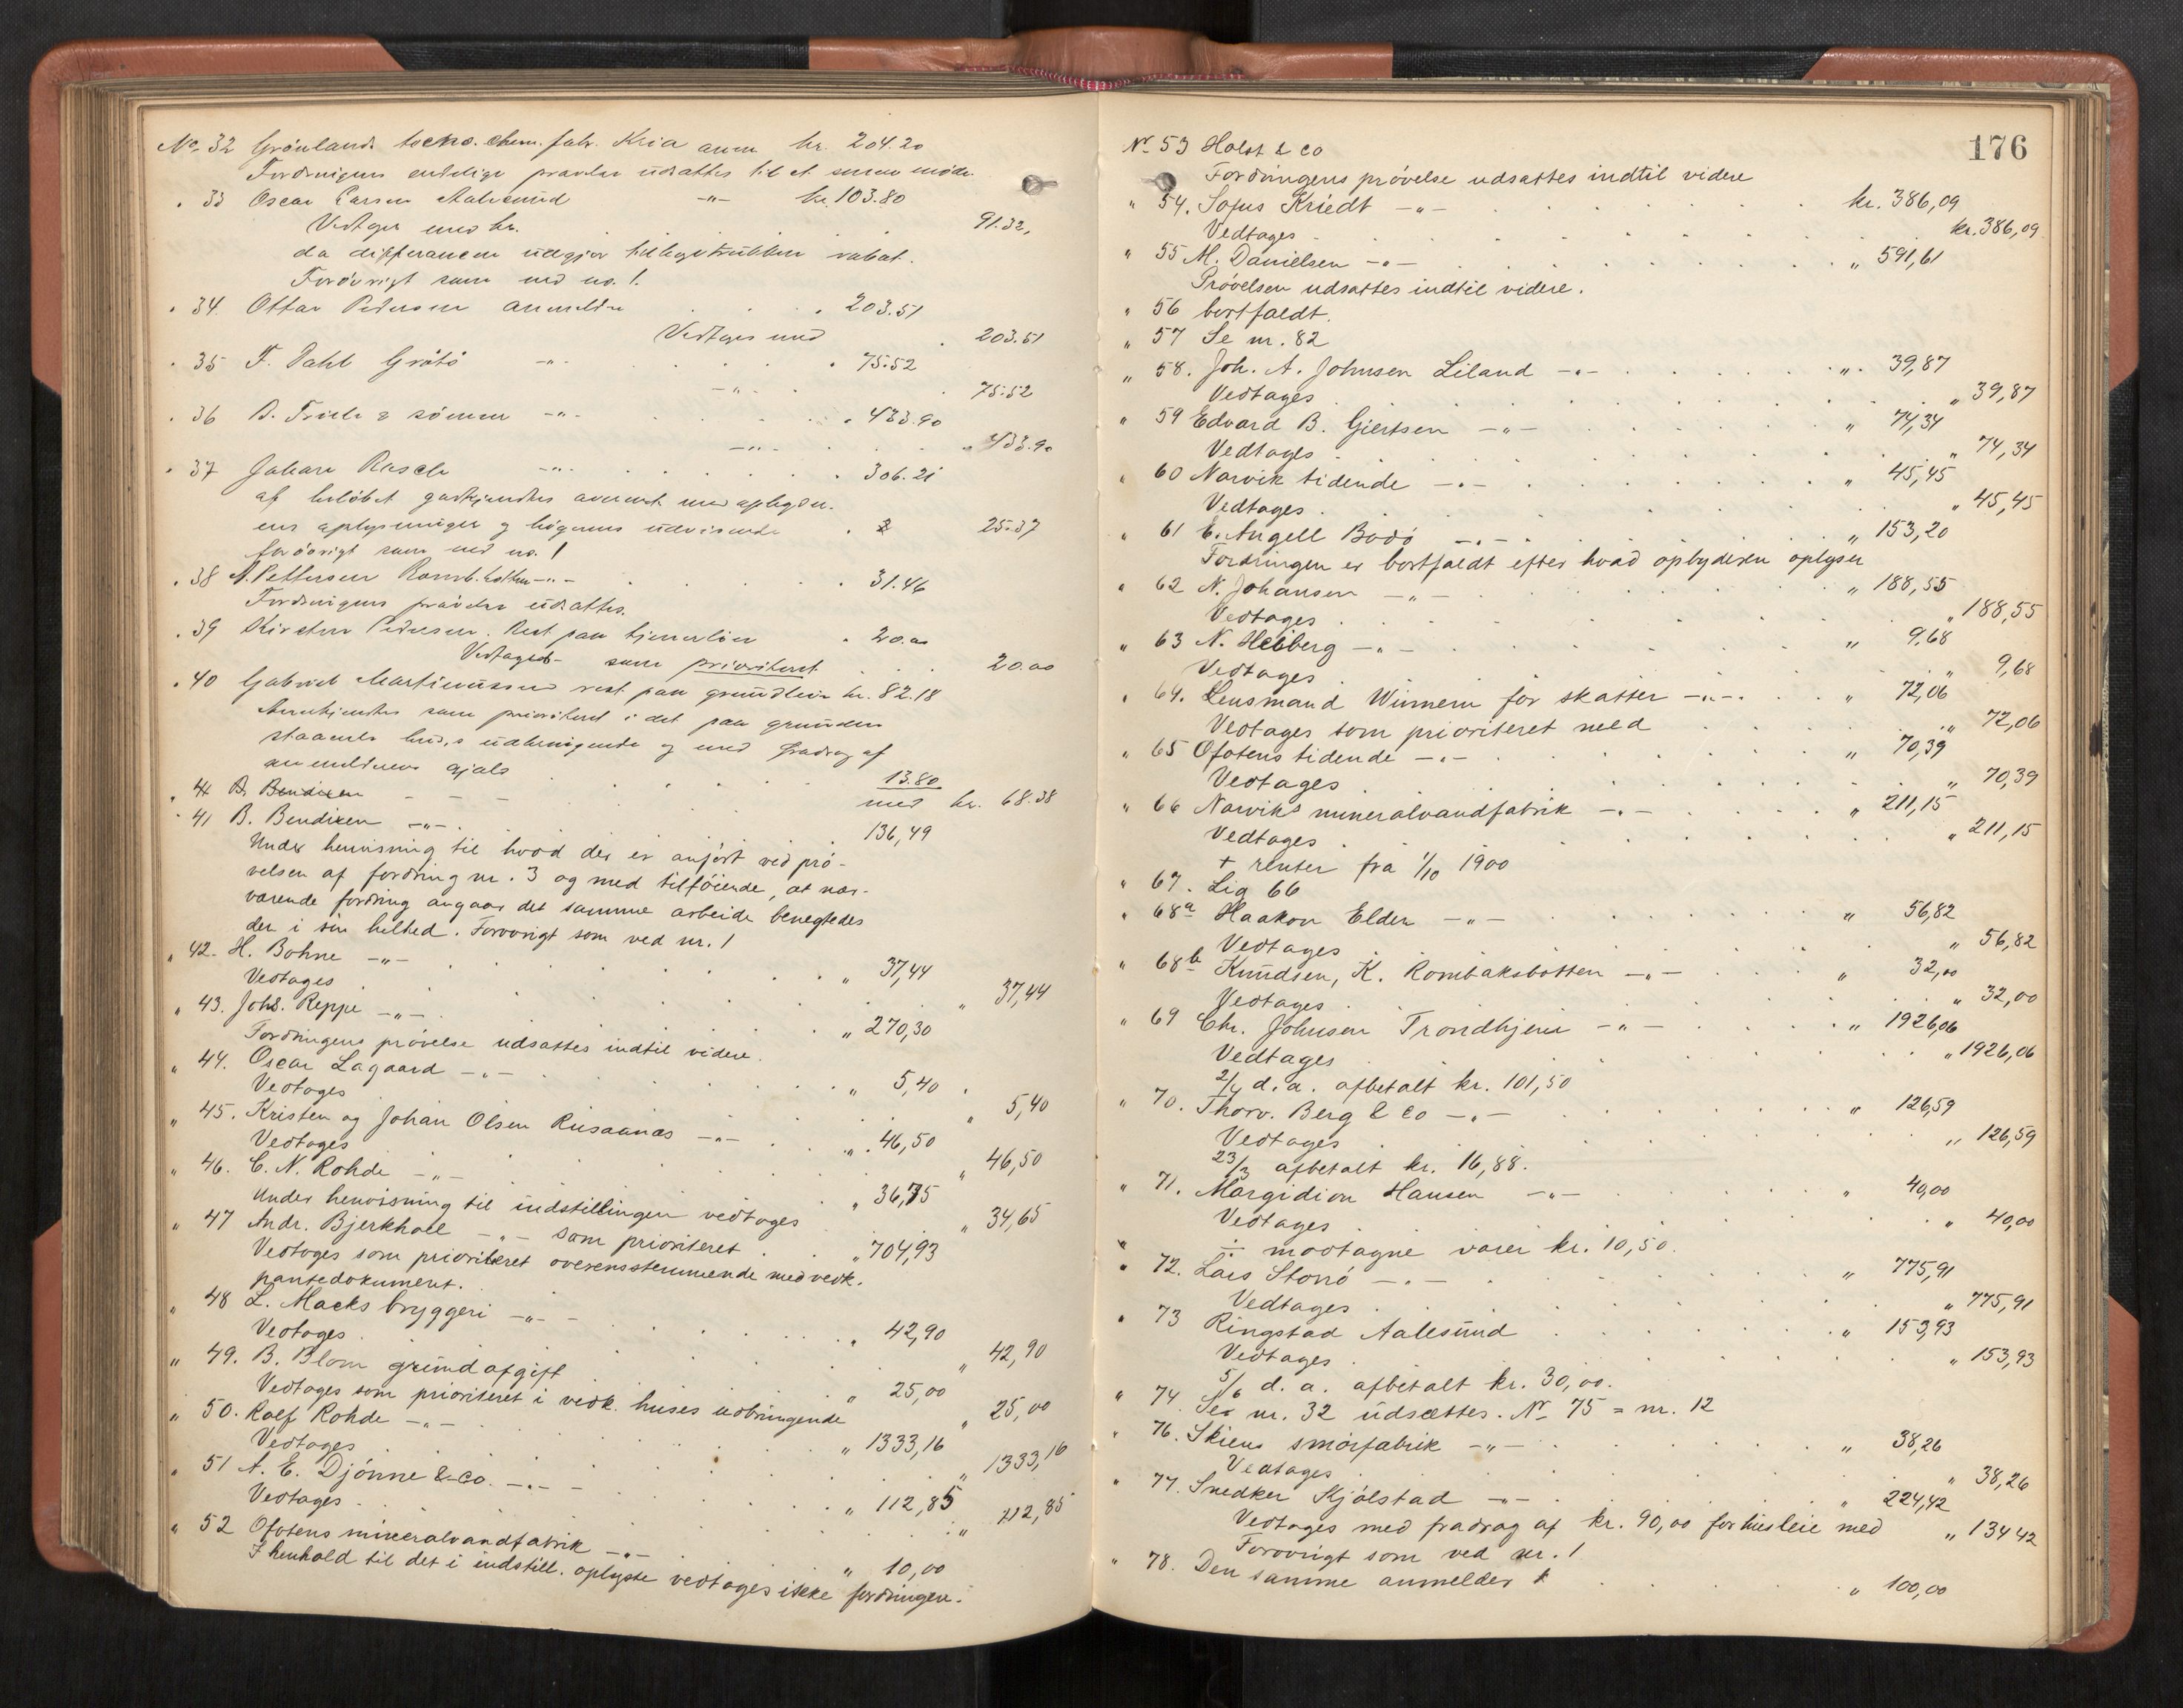 No 32 Grönlands techno. chem. fabr. Kria anm kr. 204.20
Fordringens endelige prøvelse udsættes til et senere møde
" 33 Oscar Larsen Aalesund -"- kr. 103.80
Vedtages med kr. 91.32,
da differansen udgjør rabat.
Forövrigt som ved no. 1.
" 34 Ottar Pedersen anmelder . . . 203.51
Vedtages med . 203.51
" 35 F. Dahl Grötö -"- . . . 75.52
-"- . . 75.52
" 36 -"- . . . 433.90
-"- . . 433.90
" 37 Johan Rasch -"- . . . 306.21
af belöbet godkjendtes
ens oplysninger og bögernes udvisende . 25.37
forövrigt som ved no. 1
" 38 A. Pettersen -"- . . 31.46
Fordringens prövelse udsættes.
" 39 Pedersen. Rest paa tjenerlön . 20.00
Vedtages som prioriteret . . 20.00
" 40 Gabriel Martinussen rest paa grundleie kr. 82.18
Anerkjendes som prioriteret i det paa grunden
staaende hus,s udbringende og med fradrag af
anmelderens gjæld 13.80
41 B. Bendixen - - - med kr. 68.38
" 41 B. Bendixen -"- . . . 136,49
Under henvisning til hvad der er anfört ved prö-
velsen af fordring nr. 3 og med tilföiende, at nær-
værende fordring angaar det samme arbeide benegtedes
den i sin helhed. Forövrigt som ved nr. 1
" 42. H. Bohne -"- . . . " 37,44
Vedtages . . . " 37,44
" 43. Johs. Reppe -"- . . . " 270,30
Fordringens prövelse udsættes indtil videre.
" 44. Oscar Lagaard -"- . . . " 5,40 .
Vedtages . . . " 5,40
" 45. Kristen og Johan Olsen Riisaanæs -"- . . " 46,50
Vedtages . . . " 46,50
" 46. C. N. Rohde -"- . . . " 36,75
Under henvisning til indstillingen vedtages " 34,65
" 47 Andr. Bjerkholt -"- som prioriteret . . " 704,93
Vedtages som prioriteret overensstemmende med vedk.
pantedokument.
" 48 L. Macks bryggeri -"- . . . " 42,90
Vedtages . . . " 42,90
" 49. B. Blom grundafgift . . . " 25,00
Vedtages som prioriteret i vedk. huses udbringende " 25,00
" 50. Rolf Rohde -"- . . . " 1333,16
Vedtages . . . " 1333,16
" 51 A. E. Djönne & co. -"- . . . " 112,85
Vedtages . . . " 112,85
" 52 Ofotens mineralvandfabrik -"- . . " 10,00
I henhold til det i indstill. oplyste vedtages ikke fordringen.
176
Nr. 53 Holst & co
Fordringens prövelse udsættes indtil videre
" 54. Sofus Kriedt -"- . . . kr. 386,09
Vedtages . . . kr. 386,09
" 55 M. Danielsen -"- . . . " 591,61
Prövelsen udsættes indtil videre.
" 56 bortfaldt.
" 57 Se nr. 82
" 58. Joh. A. Johnsen Liland -"- . . . " 39,87
Vedtages . . . " 39,87
" 59 Edvard B. Giertsen -"- . . . " 74,34
Vedtages . . . " 74,34
" 60 Narvik tidende -"- . . . " 45,45
Vedtages . . . " 45,45
" 61 E. Angell Bodö -"- . . . " 153,20
Fordringen er bortfaldt efter hvad opbyderen oplyser
" 62 N. Johansen -"- . . . " 188,55
Vedtages . . . " 188,55
" 63 N. Heiberg -"- . . . " 9,68
Vedtages . . . " 9,68
" 64. Lensmand Winnem for skatter -"- . . . " 72,06
Vedtages som prioriteret med . . . " 72,06
" 65 Ofotens tidende -"- . . . " 70,39
Vedtages . . . " 70,39
" 66 Narviks mineralvandfabrik -"- . . . " 211,15
Vedtages . . . " 211,15
+ renter fra 1/10 1900
" 67. Lig 66
" 68a Haakon Elder -"- . . . " 56,82
Vedtages . . . " 56,82
" 68b Knudsen, K. Rombaksbotten -"- . . . " 32,00
Vedtages . . . " 32,00
" 69 Chr. Johnsen Trondhjem -"- . . . " 1926,06
Vedtages . . . " 1926,06
2/4 d. a. afbetalt kr. 101,50
" 70. Thorv. Berg & co -"- . . . " 126,59
Vedtages . . . " 126,59
23/3 afbetalt kr. 16,88.
" 71. Margidion Hansen -"- . . . " 40,00
Vedtages . . . " 40,00
÷ modtagne varer kr. 10,50.
" 72. Lars Storrö -"- . . . " 775,91
Vedtages . . . " 775,91
" 73 Ringstad Aalesund . . . " 153,93
Vedtages . . . " 153,93
5/6 d. a. afbetalt kr. 30,00.
" 74. Se nr. 32 udsættes. No 75 = nr. 12
" 76. Skiens smörfabrik -"- . . . " 38,26
Vedtages . . . " 38,26
" 77. Snedker Kjölstad -"- . . . " 224,42
Vedtages med fradrag af kr. 90,00 for husleie med " 134 42
Forövrigt som ved nr. 1
" 78. Den samme anmelder . . . " 100,00